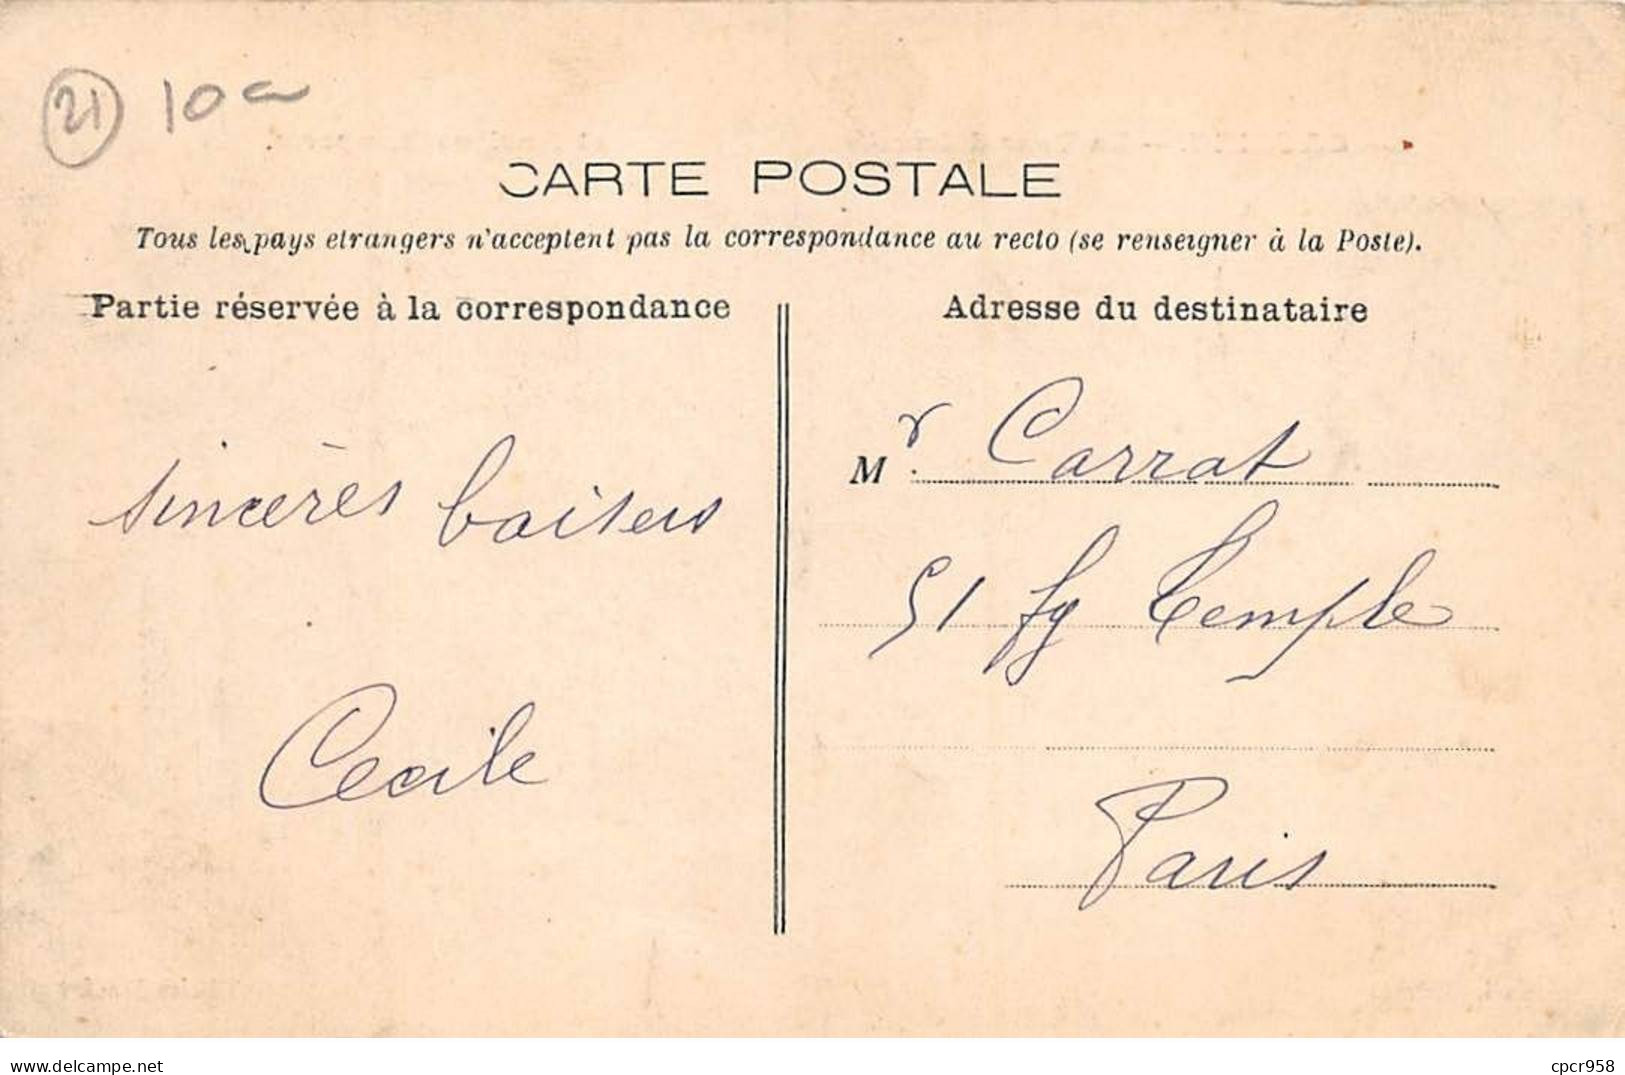 21 10
CARTE POSTALE
Tous les pays etrangers n'acceptent pas la correspondance au recto (se renseigner à la Poste).
Partie réservée à la correspondance
sincères baisers
Cecile
Adresse du destinataire
Mr. Carrat
51 fg Temple
Paris
www.delcampe.net
cpcr958